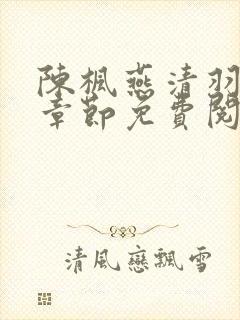 陳楓燕清羽
章節免費閱
清風戀飄雪